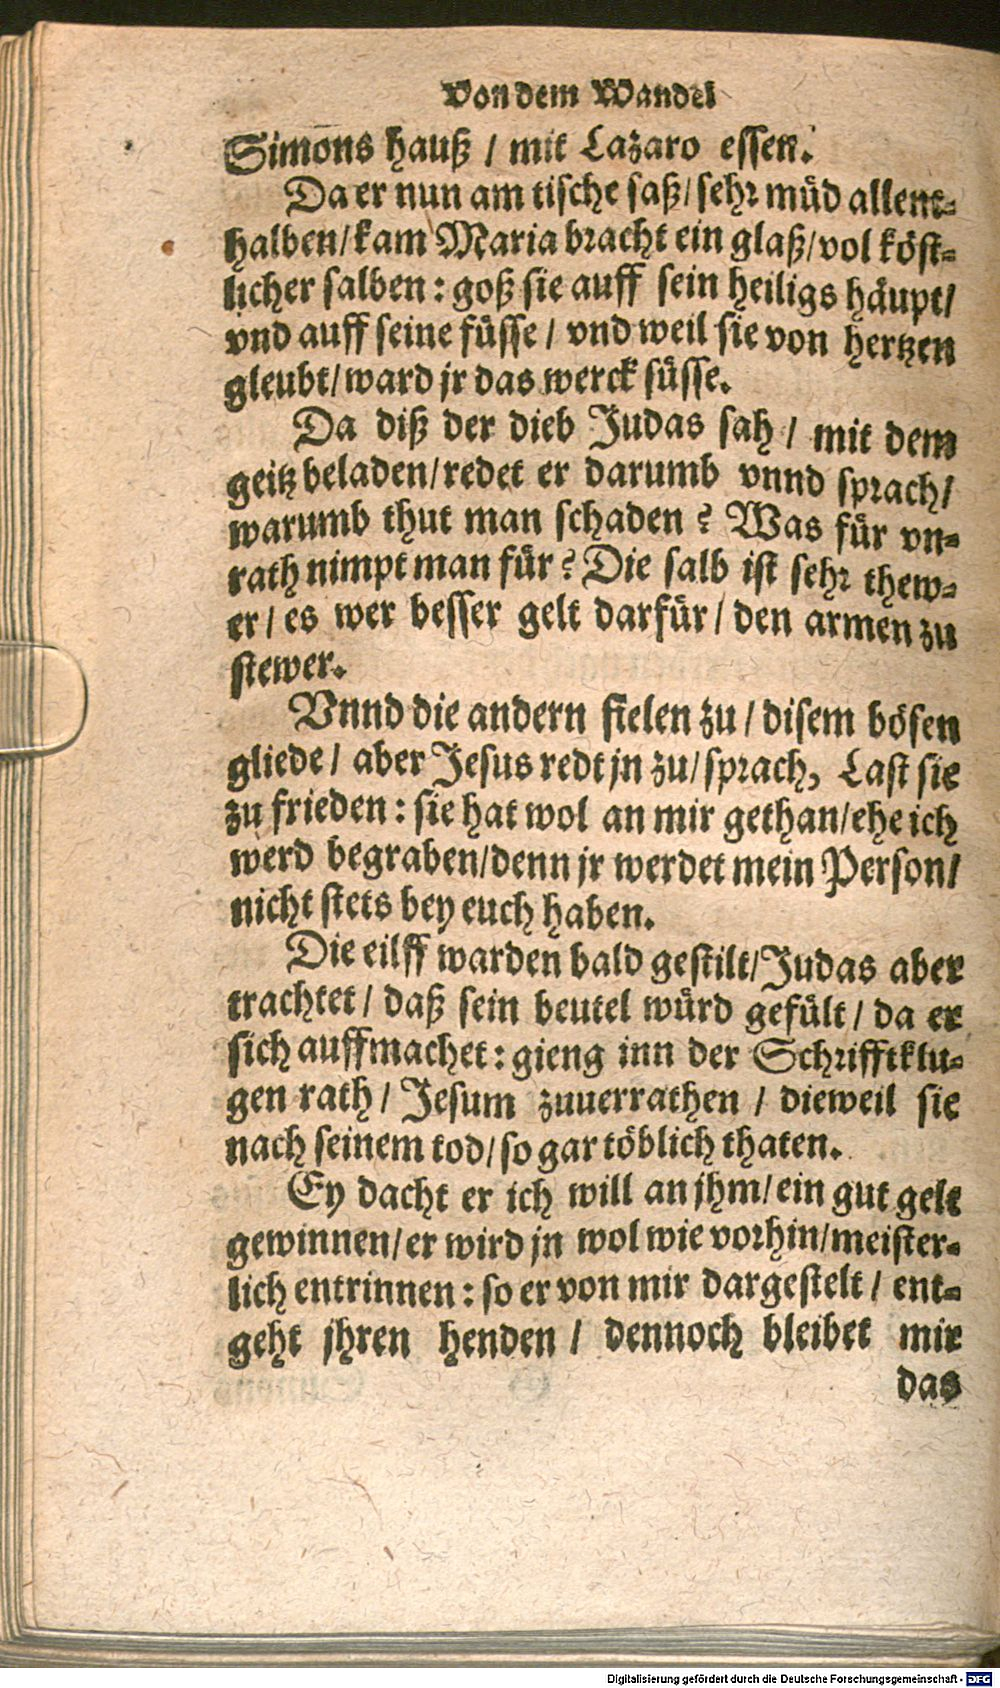 Von dem Wandel
Simons hauß / mit Lazaro essen.
Da er nun am tische saß / sehr müd allent-
halben / kam Maria bracht ein glaß / vol köst-
licher salben : goß sie auff sein heiligs häupt /
vnd auff seine füsse / vnd weil sie von hertzen
gleubt / ward jr das werck süsse.
Da diß der dieb Judas sah / mit dem
geitz beladen / redet er darumb vnnd sprach /
warumb thut man schaden ? Was für vn-
rath nimpt man für ? Die salb ist sehr thew-
er / es wer besser gelt darfür / den armen zu
stewer.
Vnnd die andern fielen zu / disem bösen
gliede / aber Jesus redt jn zu / sprach, Last sie
zu frieden : sie hat wol an mir gethan / ehe ich
werd begraben / denn jr werdet mein Person /
nicht stets bey euch haben.
Die eilff warden bald gestilt / Judas aber
trachtet / daß sein beutel würd gefült / da er
sich auffmachet : gieng inn der Schrifftklu-
gen rath / Jesum zuuerrathen / dieweil sie
nach seinem tod / so gar töblich thaten.
Ey dacht er ich will an jhm / ein gut gelt
gewinnen / er wird jn wol wie vorhin / meister-
lich entrinnen : so er von mir dargestelt / ent-
geht jhren henden / dennoch bleibet mir
das
Digitalisierung gefördert durch die Deutsche Forschungsgemeinschaft - DFG